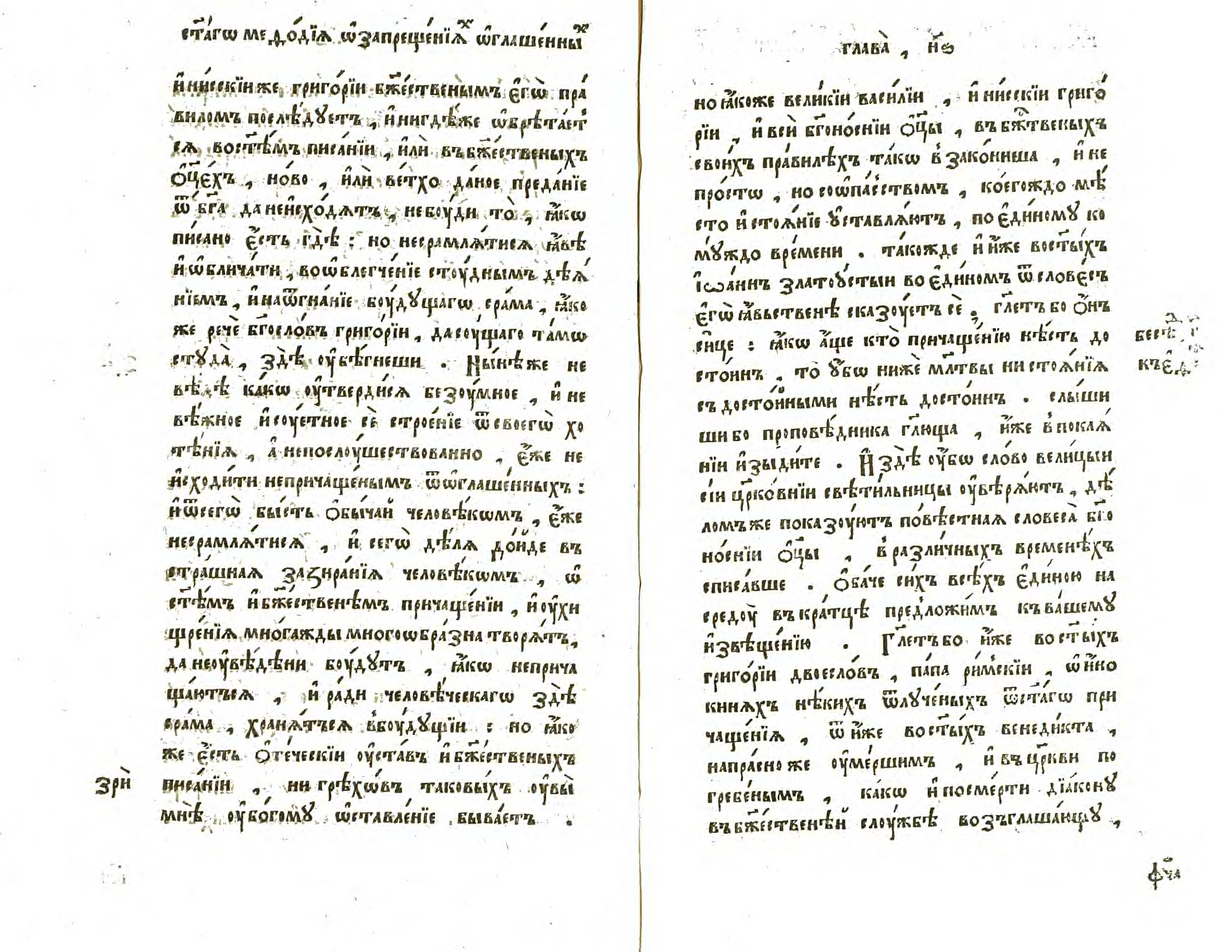 ст҃а́гѡ меѳо́дїѧ ѡ҆ запреще́нїѧⷯ ѡ҆глаше́нныⷯ
и҆ ни́сскїи же григо́рїи бж҃е́ственымъ є҆гѡ̀ пра́
виломъ послѣ́дуетъ , и҆ нигдѣ́же ѡ҆брѣта́ет
сѧ во ст҃ѣ́мъ писа́нїи , и҆лѝ въ бж҃е́ственыхъ
ѻ҆ц҃є́хъ , но́во , и҆лѝ ве́тхо да́ное преда́нїе
ѿ бг҃а да не и҆схо́дѧтъ , не бꙋ́ди то̀ , ꙗ҆́кѡ
пи́сано є҆́сть гдѣ̀ : но не срамлѧ́тисѧ ꙗ҆́вѣ
и҆ ѡ҆блича́ти , во ѡ҆блегче́ніе стꙋ́днымъ дѣѧ́
нїемъ , и҆ на ѿгна́нїе бꙋ́дꙋщагѡ сра́ма , ꙗ҆́ко
же речѐ бг҃осло́въ григо́рїи , да сꙋ́щаго та́мѡ
стꙋда̀ , здѣ̀ ᲂу҆бѣ́гнеши . Ны́нѣ же не
вѣ́дѣ ка́кѡ ᲂу҆тверди́сѧ безꙋ́мное , и҆ не
вѣ́жное и҆ сꙋ́етное сѐ строе́нїе ѿ своегѡ̀ хо
тѣ́нїѧ , а҆ не послꙋ́шествованно , є҆́же не
и҆сходи́ти непричаще́нымъ ѿ ѡ҆глаше́нныхъ :
и҆ ѿ сегѡ̀ бы́сть ѻ҆бы́чай человѣ́кѡмъ , є҆́же
не срамлѧ́тисѧ , и҆ сегѡ̀ дѣ́лѧ до́йде въ
стра́шная зазира́нїѧ человѣ́кѡмъ , ѡ҆
ст҃ѣ́мъ и҆ бж҃е́ственѣмъ причаще́нїи , и҆ ᲂу҆хи
щре́нїѧ мно́гажды многоѡбра́зна творѧ́тъ ,
да не ᲂу҆вѣ́дѣни бꙋ́дꙋтъ , ꙗ҆́кѡ не прича
ща́ютъсѧ , и҆ ра́ди человѣ́ческагѡ здѣ̀
сра́ма , хранѧ́тъсѧ в бꙋ́дꙋщїи : но ꙗ҆́ко
же є҆́сть ѻ҆те́ческїи ᲂу҆ста́въ и҆ бж҃е́ственыхъ
зрѝ
писа́нїи , ни грѣхѡ́въ таковы́хъ ᲂу҆вы̀
мнѣ̀ ᲂу҆бо́гомꙋ ѡ҆ставле́нїе быва́етъ .
глава̀ , н҃ѳ
но ꙗ҆́коже вели́кїи васи́лїи , и҆ ни́сскїи григо́
рїи , и҆ всѝ бг҃оно́снїи ѻ҆ц҃ы̀ , въ бж҃твеныхъ
свои́хъ пра́вилѣхъ та́кѡ в зако́ниша , и҆ не
про́стѡ , но со ѡ҆па́сствомъ , коего́ждо мѣ́
сто и҆ стоѧ́нїе ᲂу҆ставлѧ́ютъ , по є҆ди́номꙋ ко
мꙋ́ждо вре́мени . та́кожде и҆ и҆́же во ст҃ы́хъ
і҆ѡа́ннъ златоꙋ́стыи во є҆ди́номъ ѿ слове́съ
є҆гѡ̀ ꙗ҆́вьственѣ сказꙋ́етъ сѐ . гл҃етъ бо ѻ҆́нъ
си́це : ꙗ҆́кѡ а҆́ще кто̀ причаще́нїю нѣ́сть до
сто́инъ , то ᲂу҆́бѡ нижѐ мл҃твы ни стоѧ́нїѧ
съ досто́йными нѣ́сть досто́инъ . слы́ши
ши бо проповѣ́дника гл҃юща , и҆́же в покаѧ́
нїи и҆зыди́те . И҆ здѣ̀ ᲂу҆́бѡ сло́во вели́цыи
сїи цр҃ко́внїи свѣти́льницы ᲂу҆вѣрѧ́ютъ , дѣ́
ломъ же показꙋ́ютъ по́вѣстная словеса̀ бг҃о
но́снїи ѻ҆ц҃ы̀ , в разли́чныхъ временѣ́хъ
списа́вше . Ѻ҆ба́че си́хъ всѣ́хъ є҆ди́ною на
средꙋ̀ въ кра́тцѣ предло́жимъ къ ва́шемꙋ
и҆звѣще́нїю . Гл҃етъ бо и҆́же во ст҃ы́хъ
григо́рїи двоесло́въ , па́па ри́мскїи , ѡ҆ и҆́но
кинѧхъ нѣ́кихъ ѿлꙋче́ныхъ ѿ ст҃а́гѡ при
чаще́нїѧ , ѿ и҆́же во ст҃ы́хъ венеди́кта ,
напра́сно же ᲂу҆ме́ршимъ , и҆ въ цр҃кви по
гребе́нымъ , ка́кѡ и҆ по сме́рти дїа́конꙋ
въ бж҃е́ственѣй слꙋ́жбѣ возъглаша́ющꙋ ,
ф҃ча